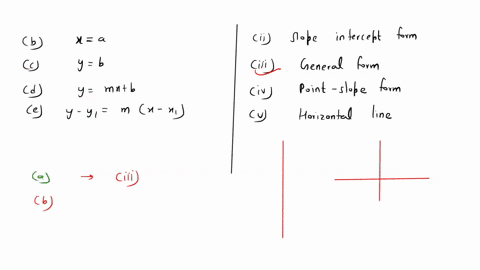 (b) x = a
(c) y = b
(d) y = mx+b
(e) y - y₁ = m (x - x₁)
(ii) Slope intercept form
(iii) General form
(iv) Point-slope form
(v) Horizontal line
(a) → (iii)
(b)